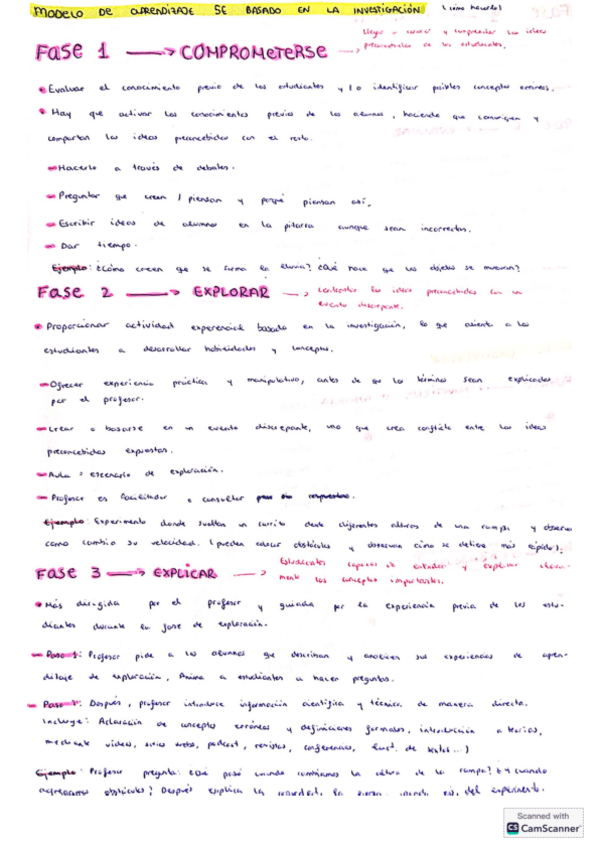 MODELO DE APRENDIZAJE SE BASADO EN LA INVESTIGACIÓN (cómo hacerlo)
FASE 1 → COMPROMETERSE → llegar a conocer y comprender las ideas
preconcebidas de los estudiantes.
Evaluar el conocimiento previo de los estudiantes y/o identificar posibles conceptos erróneos.
Hay que activar los conocimientos previos de los alumnos, haciendo que comuniquen y
compartan las ideas preconcebidas con el resto.
Hacerlo a través de debates.
Preguntar que creen / piensan y porqué piensan así.
Escribir ideas de alumnos en la pizarra aunque sean incorrectas.
Dar tiempo.
Ejemplo: ¿Cómo creen que se forma la lluvia? ¿Qué hace que los objetos se muevan?
FASE 2 → EXPLORAR → Contrastar las ideas preconcebidas con un
evento discrepante.
Proporcionar actividad experiencial basada en la investigación, lo que a los
estudiantes a desarrollar habilidades y conceptos.
Ofrecer experiencia práctica y manipulativa, antes de que los términos sean explicados
por el profesor.
Crear o basarse en un evento discrepante, uno que crea conflicto entre las ideas
preconcebidas expuestas.
Aula = escenario de exploración.
Profesor es facilitador o consultor
Ejemplo: Experimento donde sueltan un carrito desde diferentes alturas de una rampa y observan
como cambia su velocidad. (pueden colocar obstáculos y observan cómo se detiene más rápido).
FASE 3 → EXPLICAR → Estudiantes capaces de entender y explicar
mente los conceptos importantes.
Más dirigida por el profesor y guiada por la experiencia previa de los estu-
diantes durante la fase de exploración.
Paso 1: Profesor pide a los alumnos que describan y analicen sus experiencias de apren-
dizaje de exploración. Anima a estudiantes a hacer preguntas.
Paso 2: Después, profesor introduce información científica y técnica de manera directa.
Incluye: Aclaración de conceptos erróneos y definiciones formales, introducción a teorías,
mediante videos, sitios webs, podcast, revistas, conferencias, de textos...)
Ejemplo: Profesor pregunta: ¿Qué pasó cuando cambiamos la altura de la rampa? ¿Y cuando
agregamos obstáculos? Después explica la gravedad, la fuerza, del experimento.
Scanned with
CS CamScanner